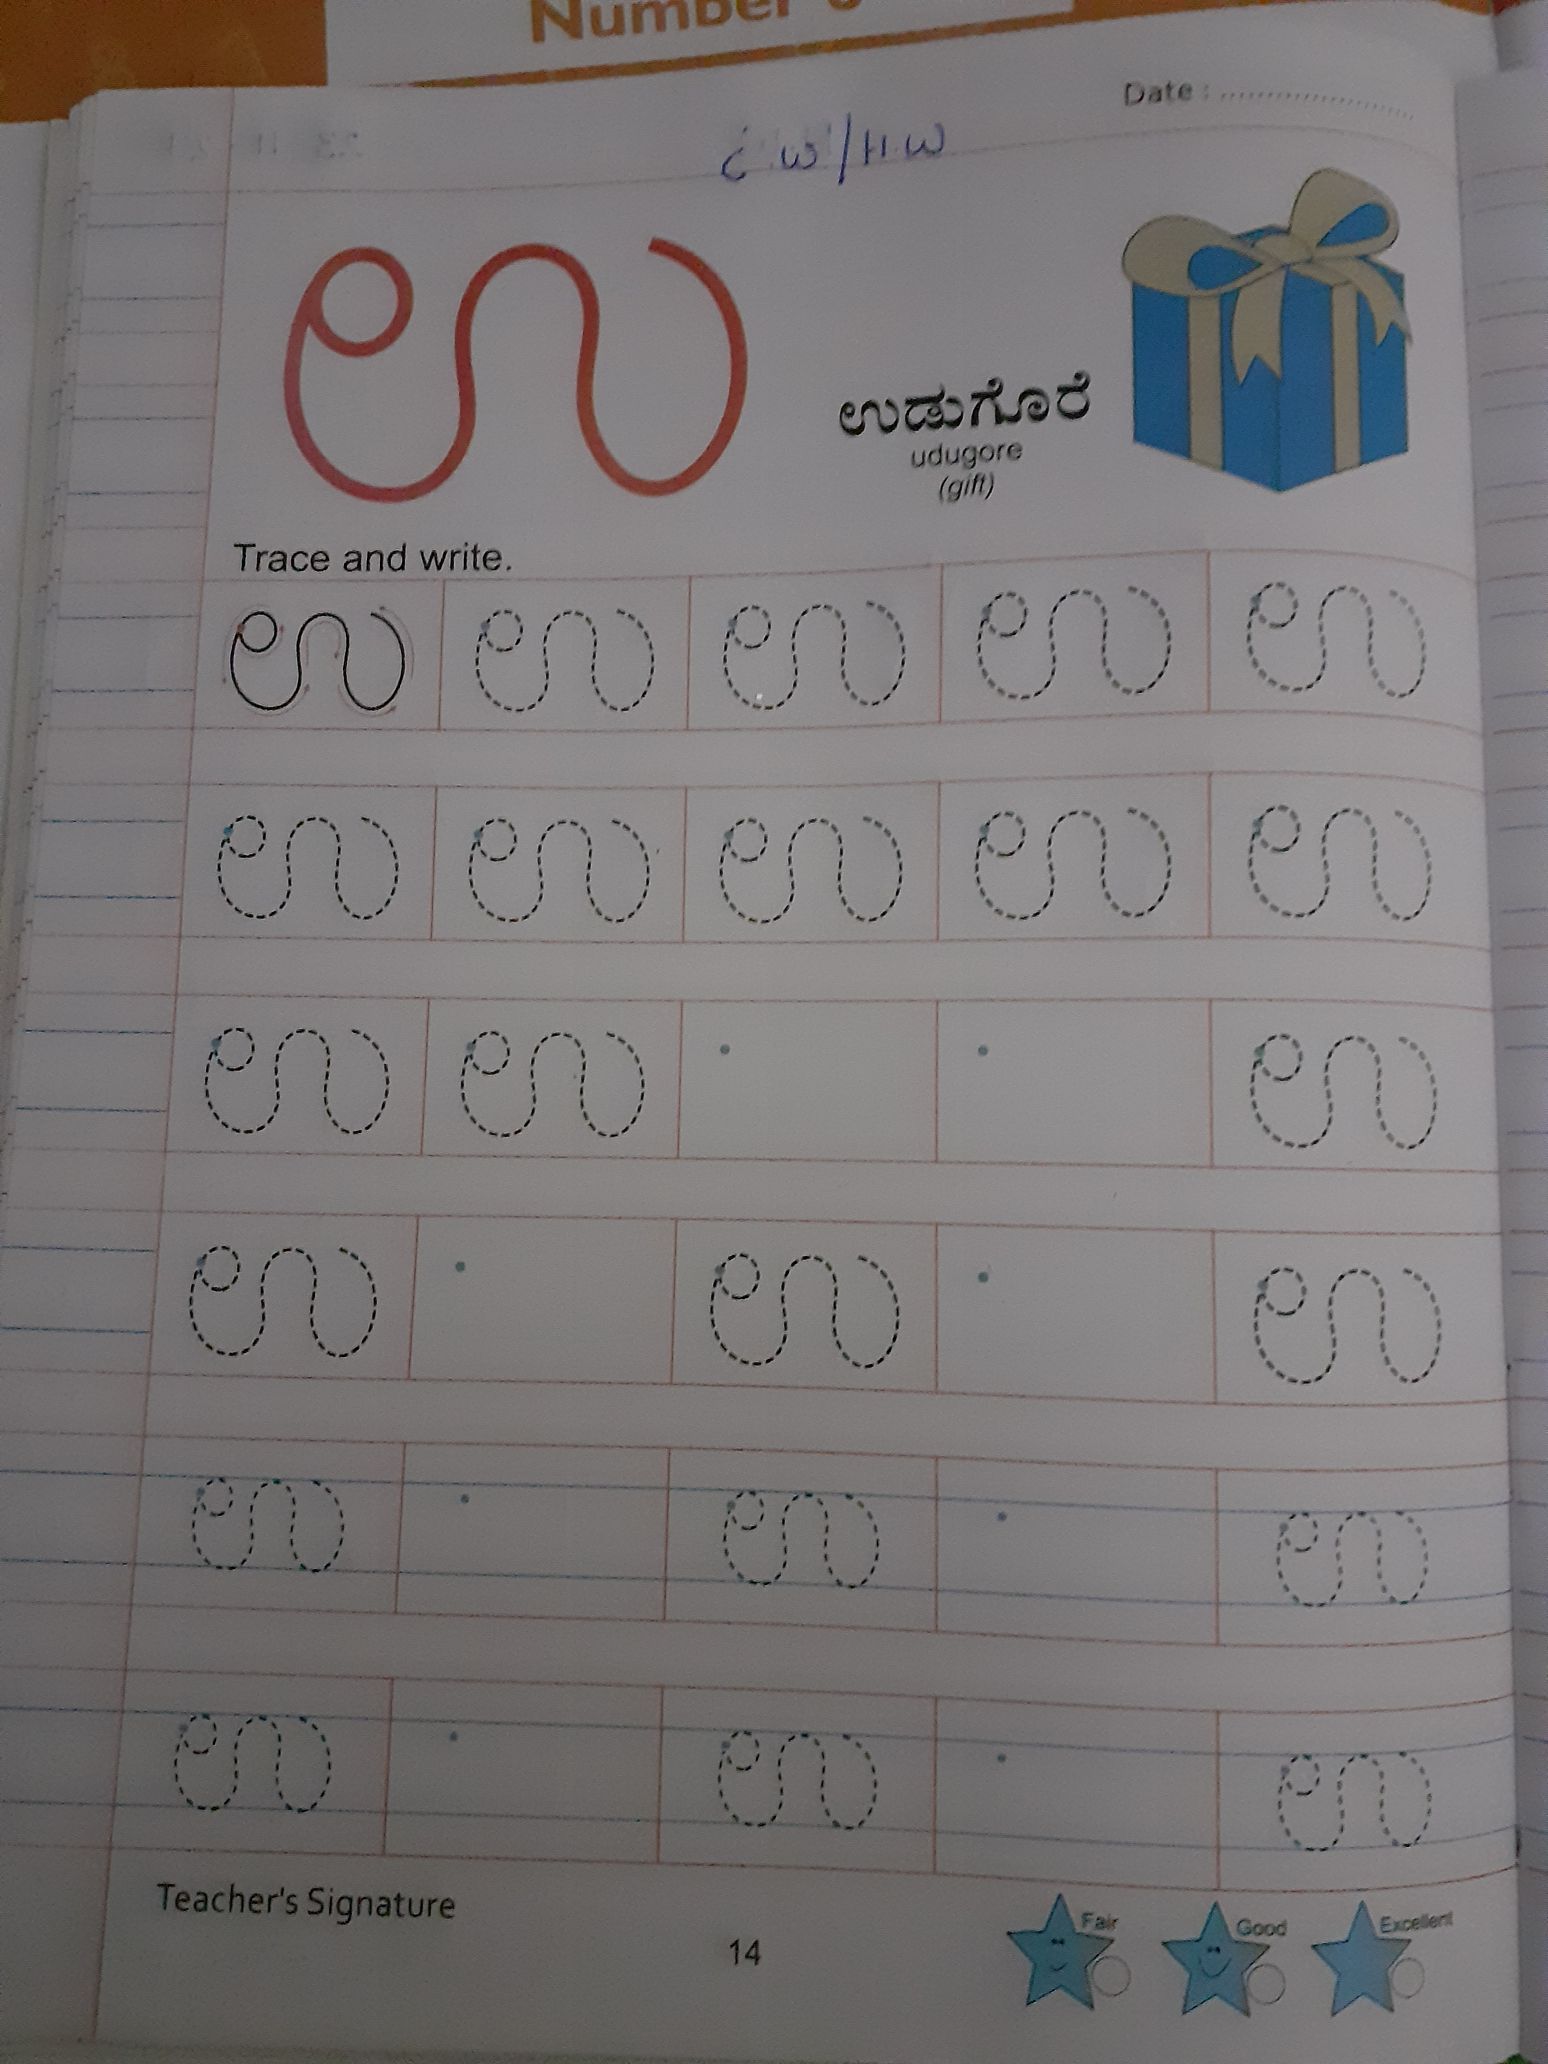 Number
Date : ....................
ಉ
ಉಡುಗೊರೆ
udugore
(gift)
Trace and write.
ಉ ಉ ಉ ಉ ಉ
ಉ ಉ ಉ ಉ ಉ
ಉ ಉ ಉ
ಉ ಉ ಉ
ಉ ಉ ಉ
ಉ ಉ ಉ
Teacher's Signature
14
Fair Good Excellent